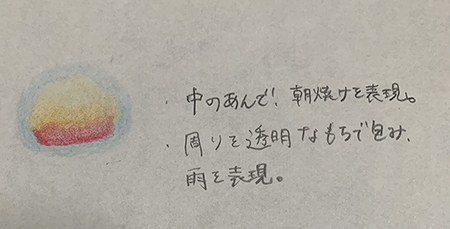 ・中のあんで、朝焼けを表現。
・周りを透明なもちで包み、
雨を表現。